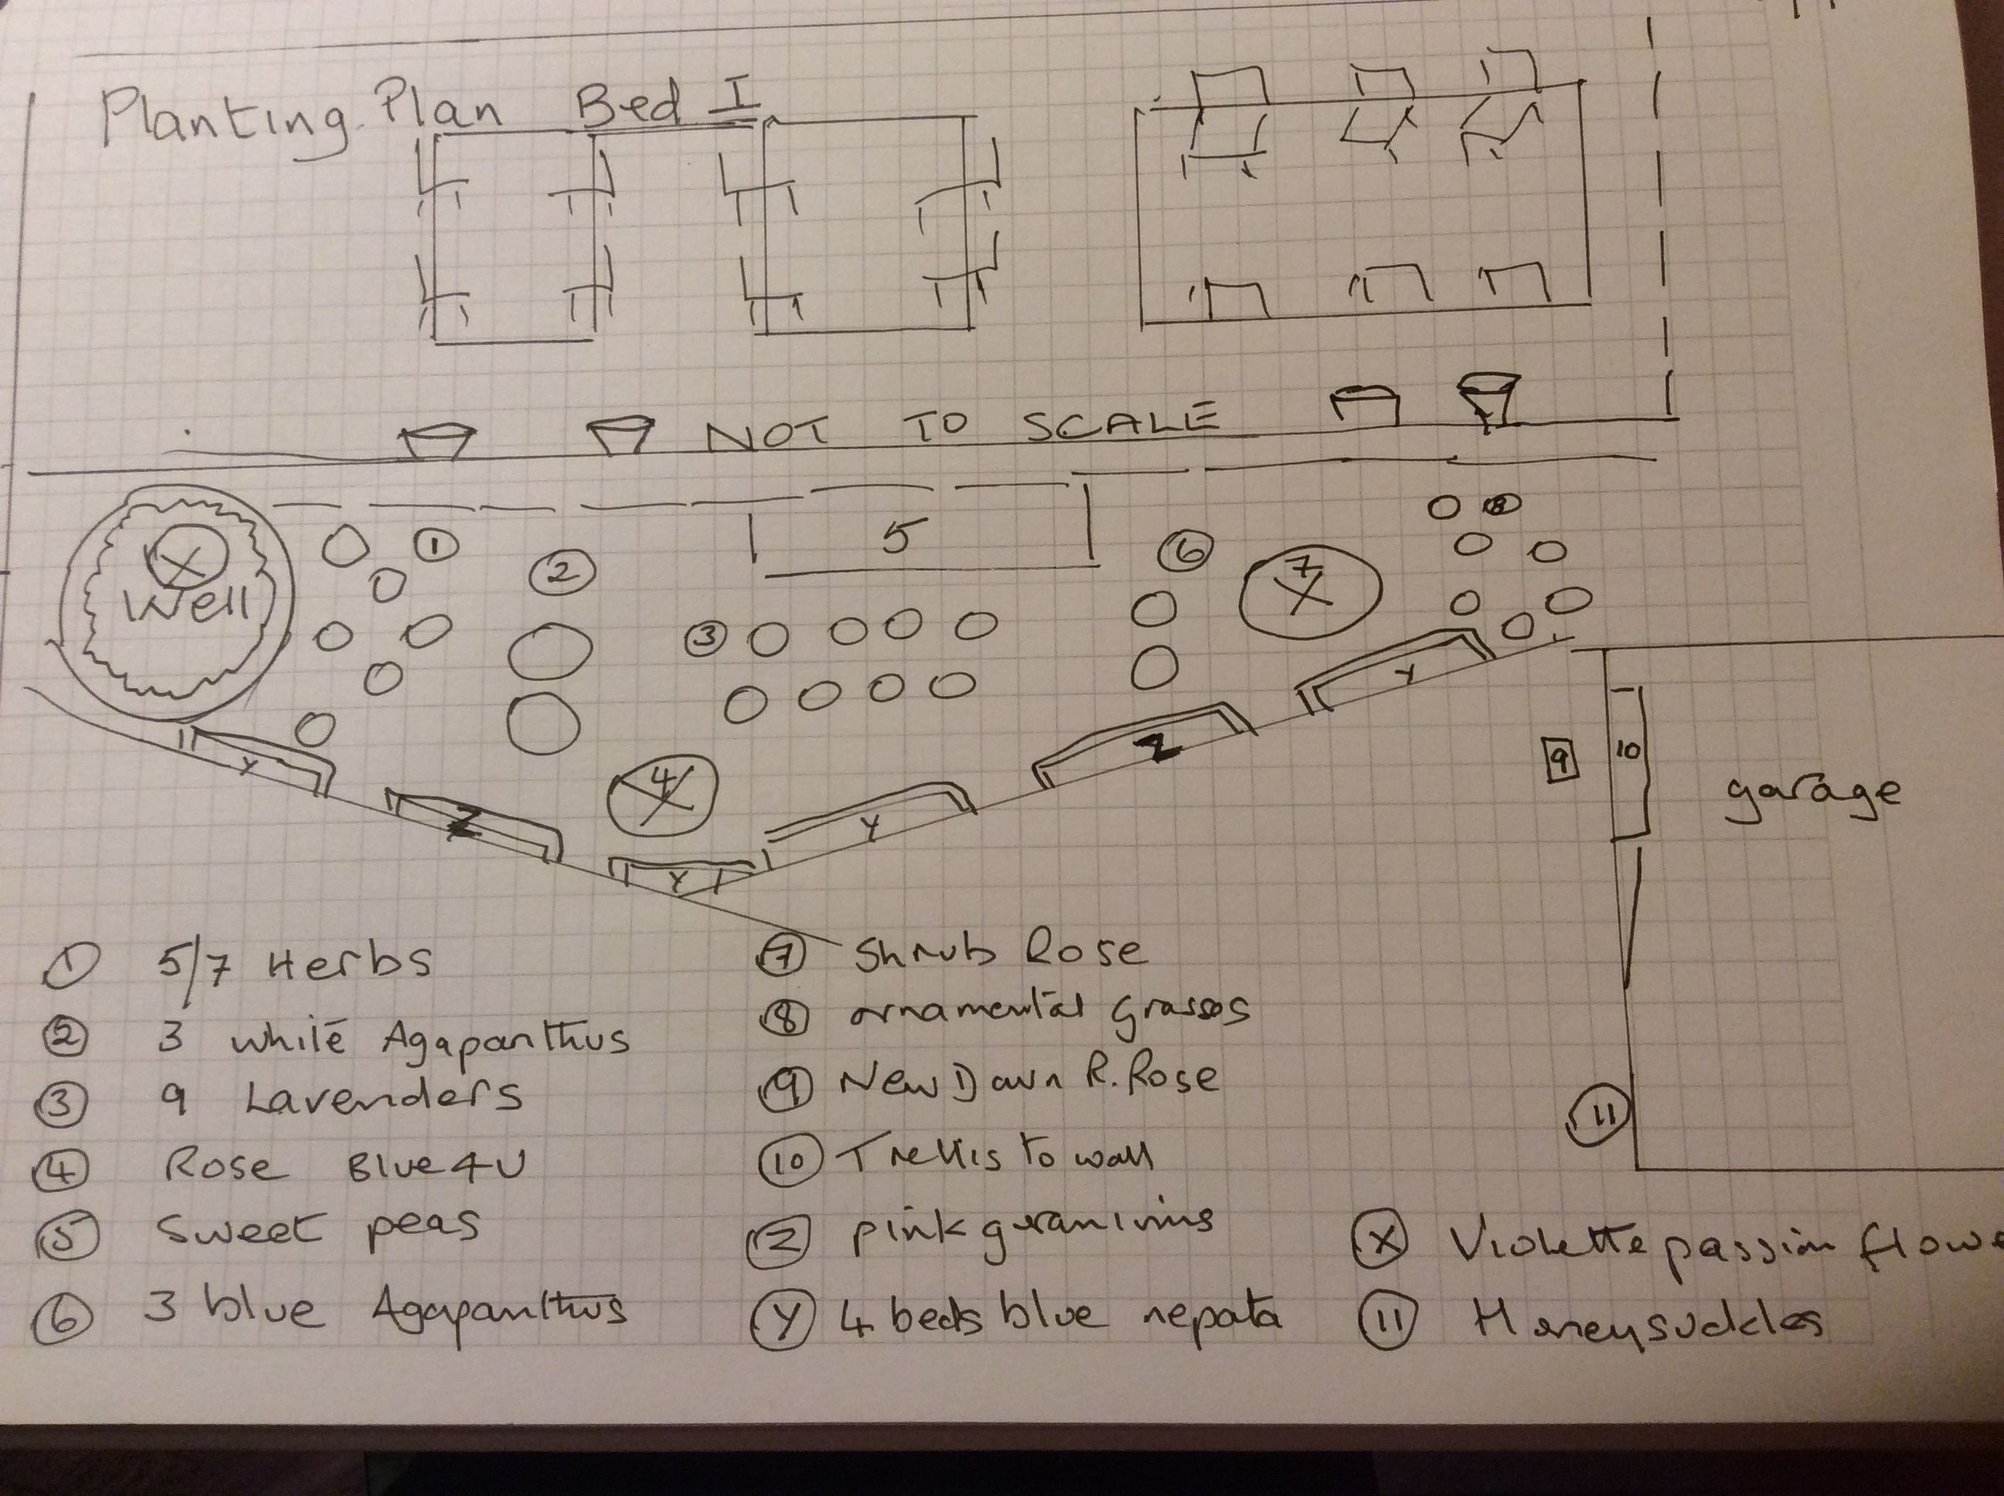 Planting Plan Bed I
NOT TO SCALE
X
Well
1
2
3
4
5
6
7
X
8
Y
Z
Y
Y
Z
Y
9
10
garage
11
① 5/7 Herbs
② 3 white Agapanthus
③ 9 Lavenders
④ Rose Blue4U
⑤ Sweet peas
⑥ 3 blue Agapanthus
⑦ Shrub Rose
⑧ ornamental grasses
⑨ New Dawn R. Rose
⑩ Trellis to wall
Z pink geraniums
Y 4 beds blue nepata
X Violette passion flowe
⑪ Honeysuckles